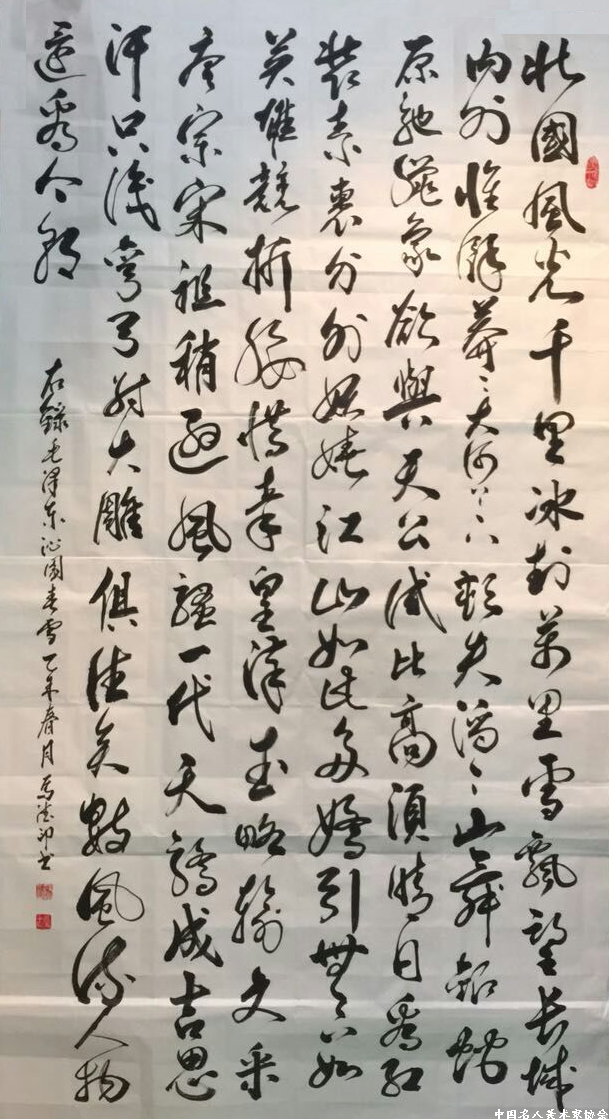 北國風光千里冰封萬里雪飄望长城
内外惟餘莽〻大河上下頓失滔〻山舞銀蛇
原馳蠟象欲與天公試比高須晴日看紅
装素裹分外妖嬈江山如此多嬌引無数
英雄競折腰惜秦皇漢武略輸文采
唐宗宋祖稍遜風騷一代天驕成吉思
汗只識彎弓射大雕俱往矣數風流人物
還看今朝
右録毛泽东沁園春雪乙未春月馬德印书
中国名人美术家协会